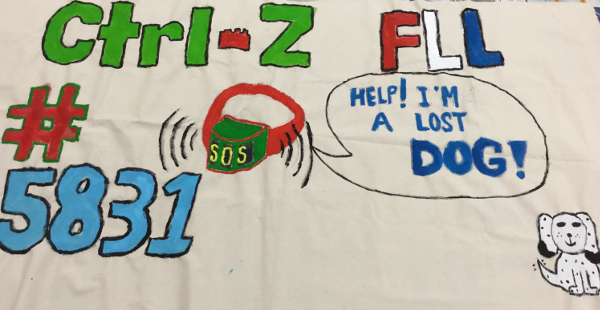 Ctrl-Z FLL
#
5831
SOS
HELP! I'M
A LOST
DOG!